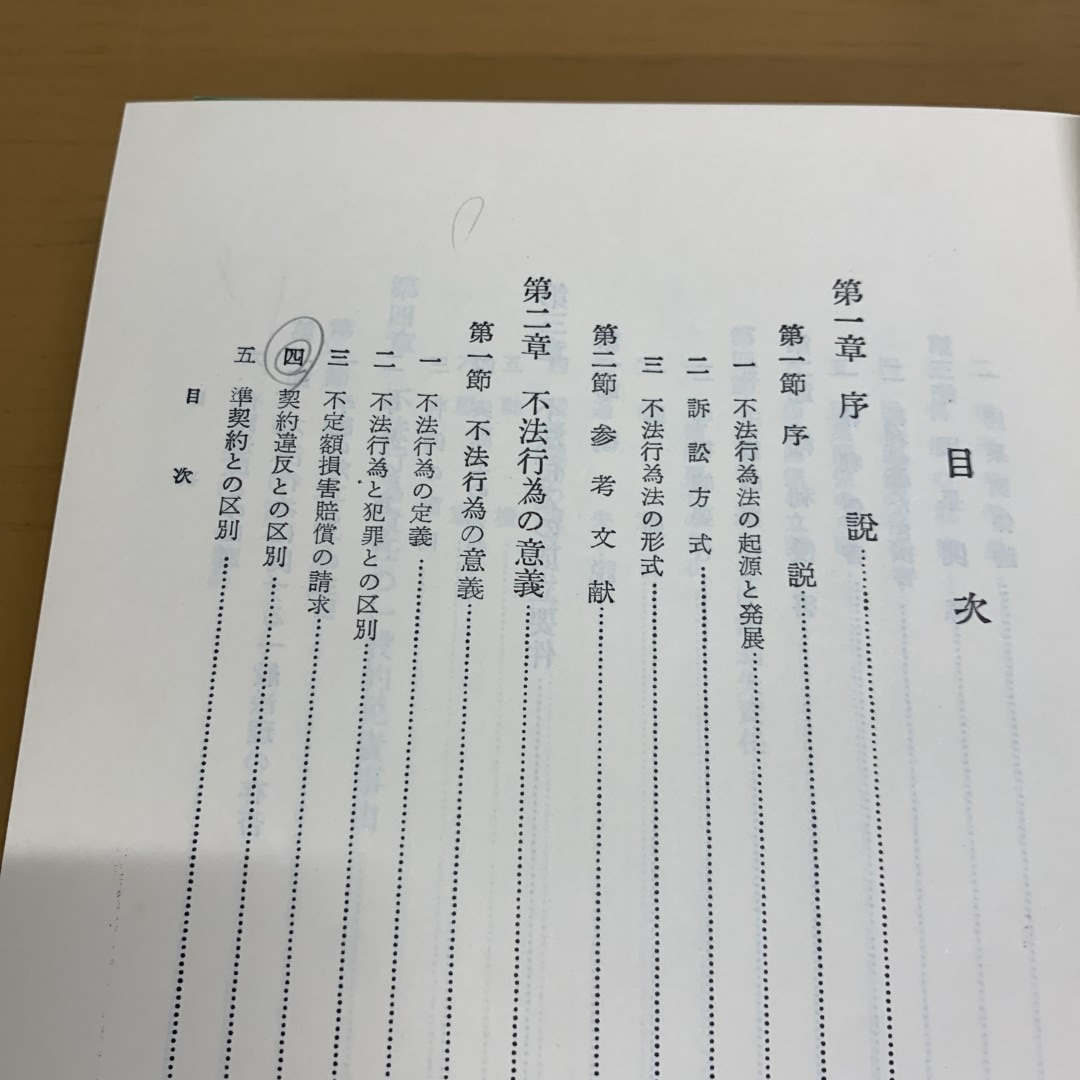 目次
第一章 序說
第一節 序説
一 不法行為法の起源と発展
二 訴訟方式
三 不法行為法の形式
第二節 参考文献
第二章 不法行為の意義
第一節 不法行為の意義
一 不法行為の定義
二 不法行為と犯罪との区別
三 不定額損害賠償の請求
四 契約違反との区別
五 準契約との区別
目次